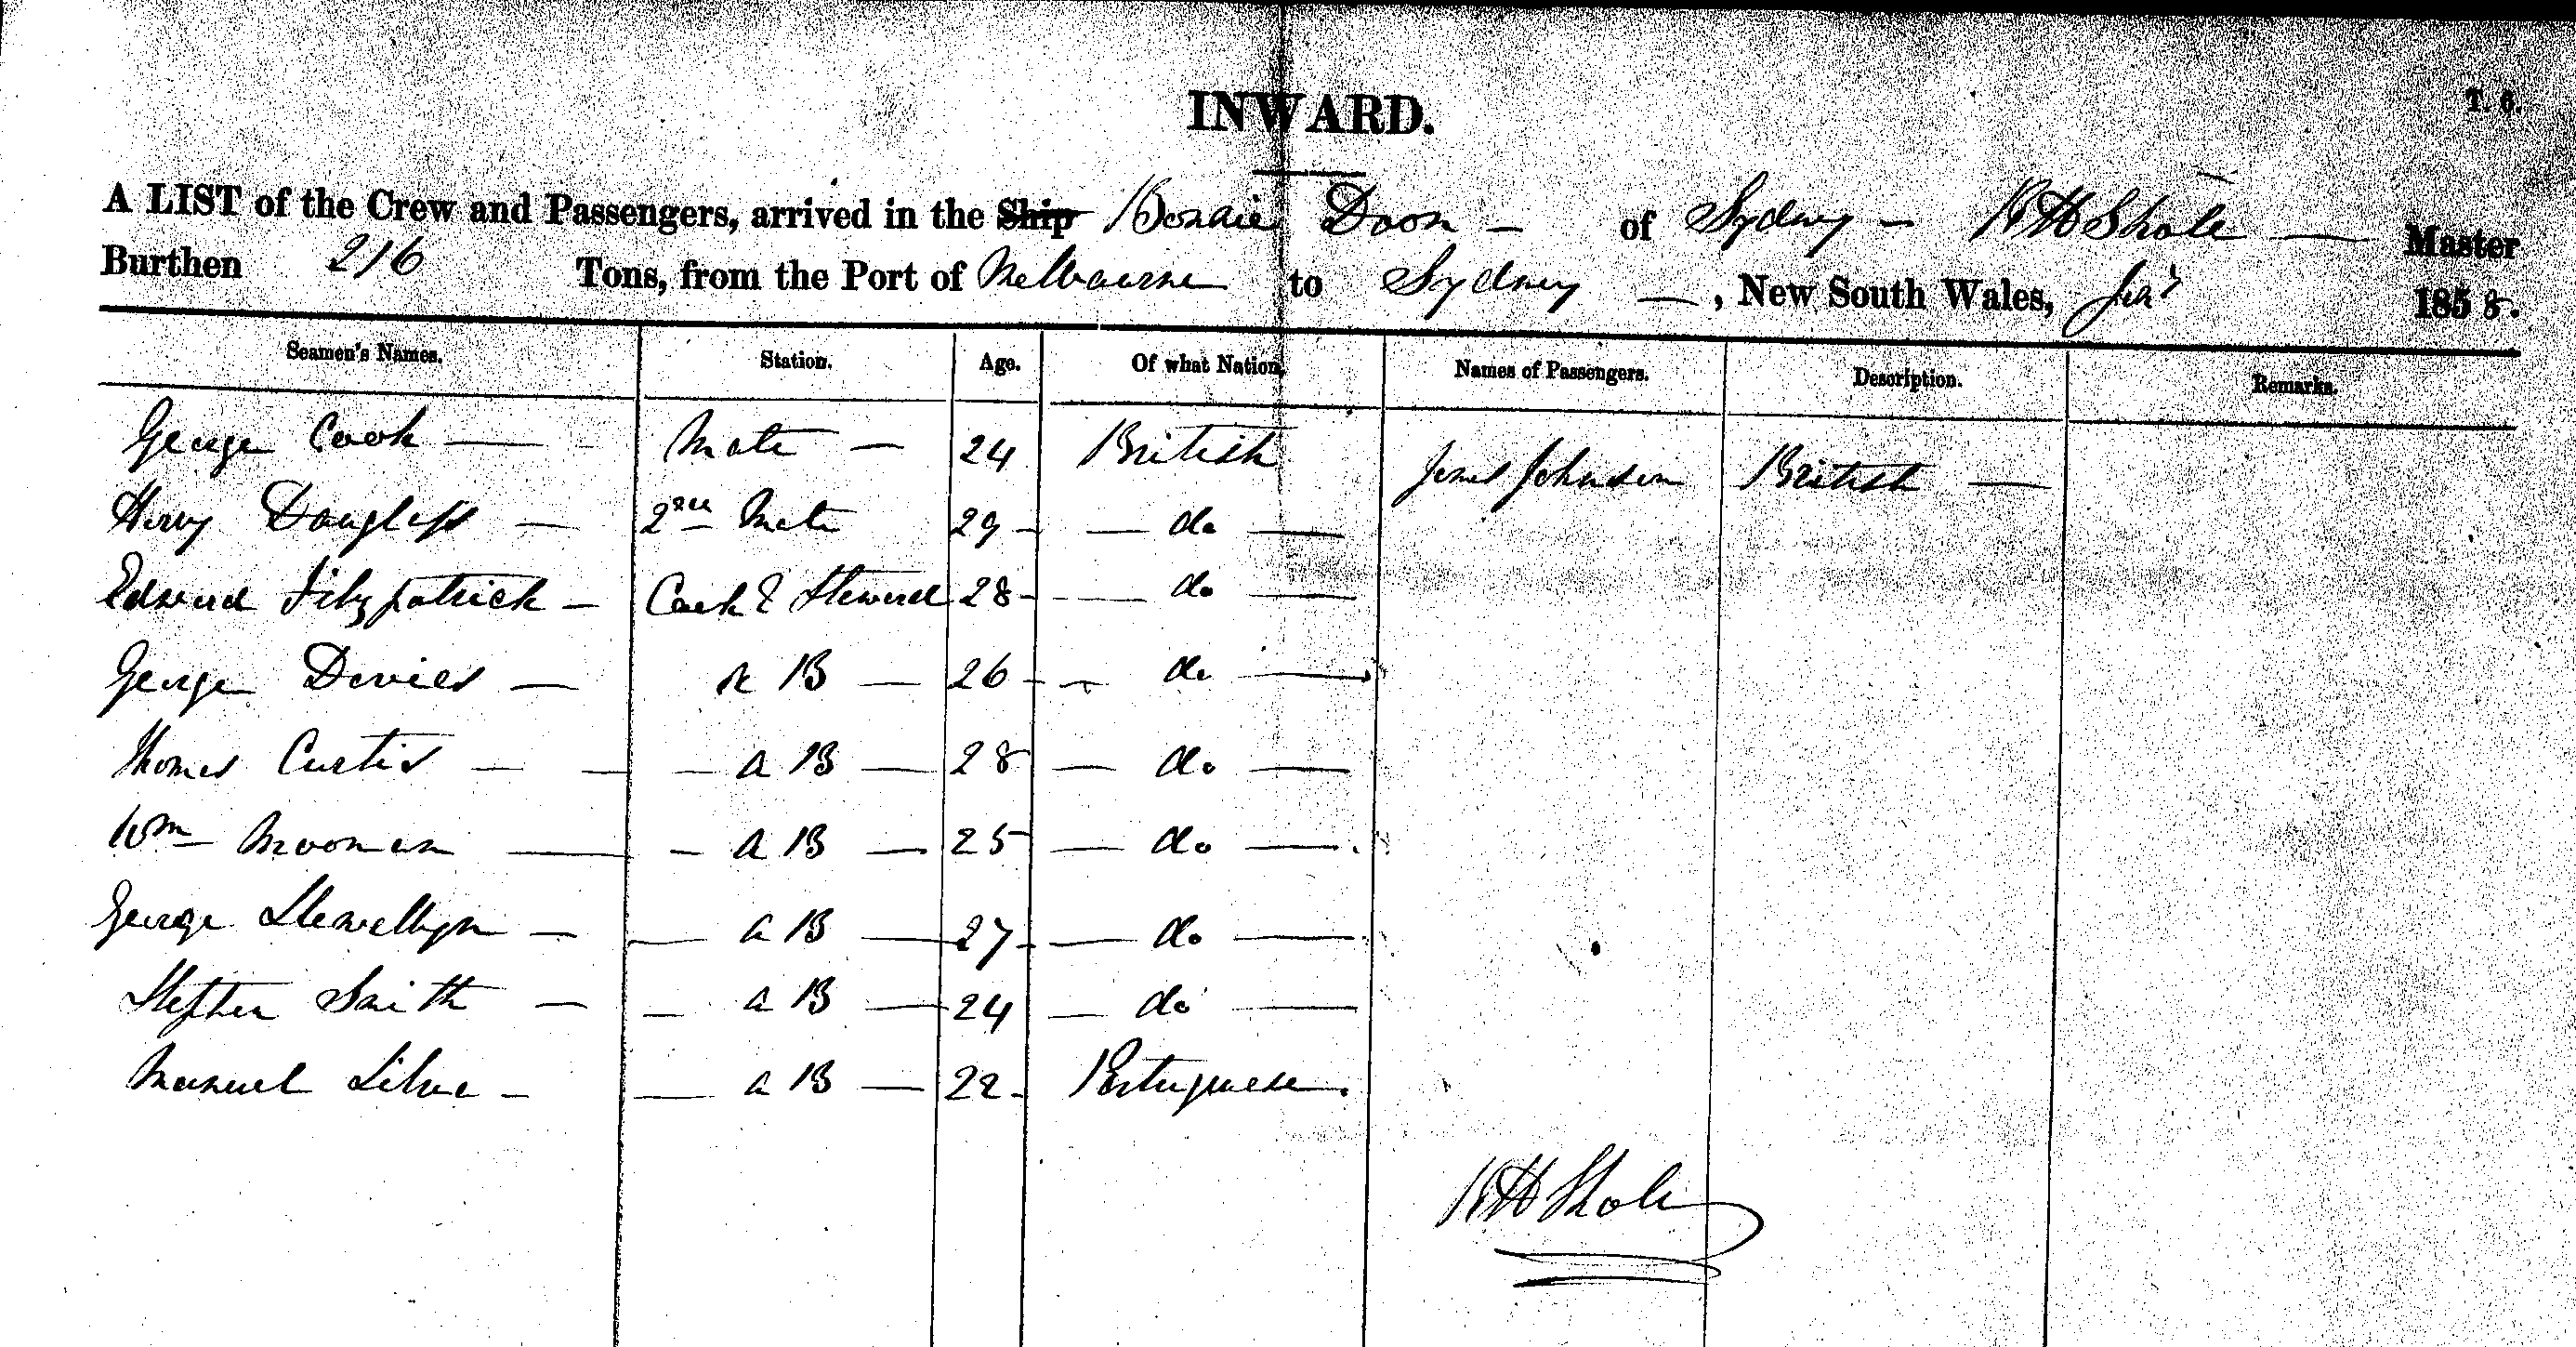 INWARD.
T. 6.
A LIST of the Crew and Passengers, arrived in the Ship Bonnie Doon - of Sydney - R H Shole — Master
Burthen 216 Tons, from the Port of Melbourne to Sydney —, New South Wales, Jany 1858.
Seamen's Names. Station. Age. Of what Nation. Names of Passengers. Description. Remarks.
George Cook — Mate — 24 British James Johnson British —
Henry Douglass — 2nd Mate 29 — do —
Edward Fitzpatrick — Cook & Steward 28 — do —
George Davies — A B — 26 — do —
Thomas Curtis — — A B — 28 — do —
Wm — A B — 25 — do —
George Llewellyn — — A B — 27 — do —
Stephen Smith — — A B — 24 — do —
Manuel Silva — — A B — 22 Portuguese.
R H Shole